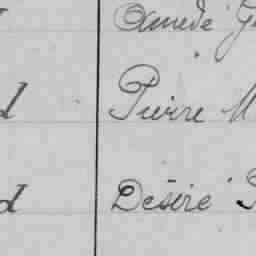 Amedé
d Pierre M
d Désiré